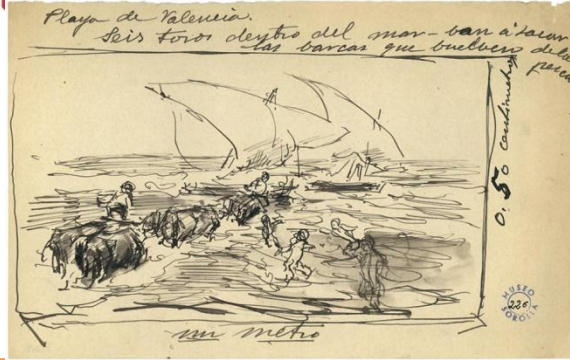 Playa de Valencia.
Seis toros dentro del mar - van á sacar
las barcas que buelven de la
pesca
0.50 centimetros
un metro
MUSEO
226
SOROLLA